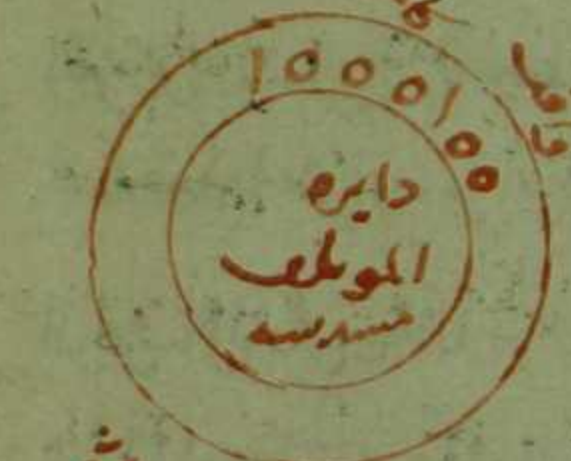 ١٥٥٥١٥٥
دايره
الموتلف
مسدسه